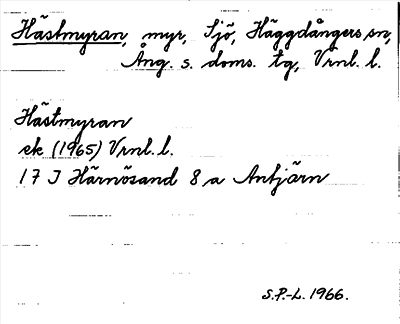 Hästmyran, myr, Sjö, Häggdångers sn,
Ång. s. doms. tg, Vrnl. l.
Hästmyran
ek (1965) Vrnl. l.
17 I Härnösand 8 a Antjärn
S.P.-L. 1966.